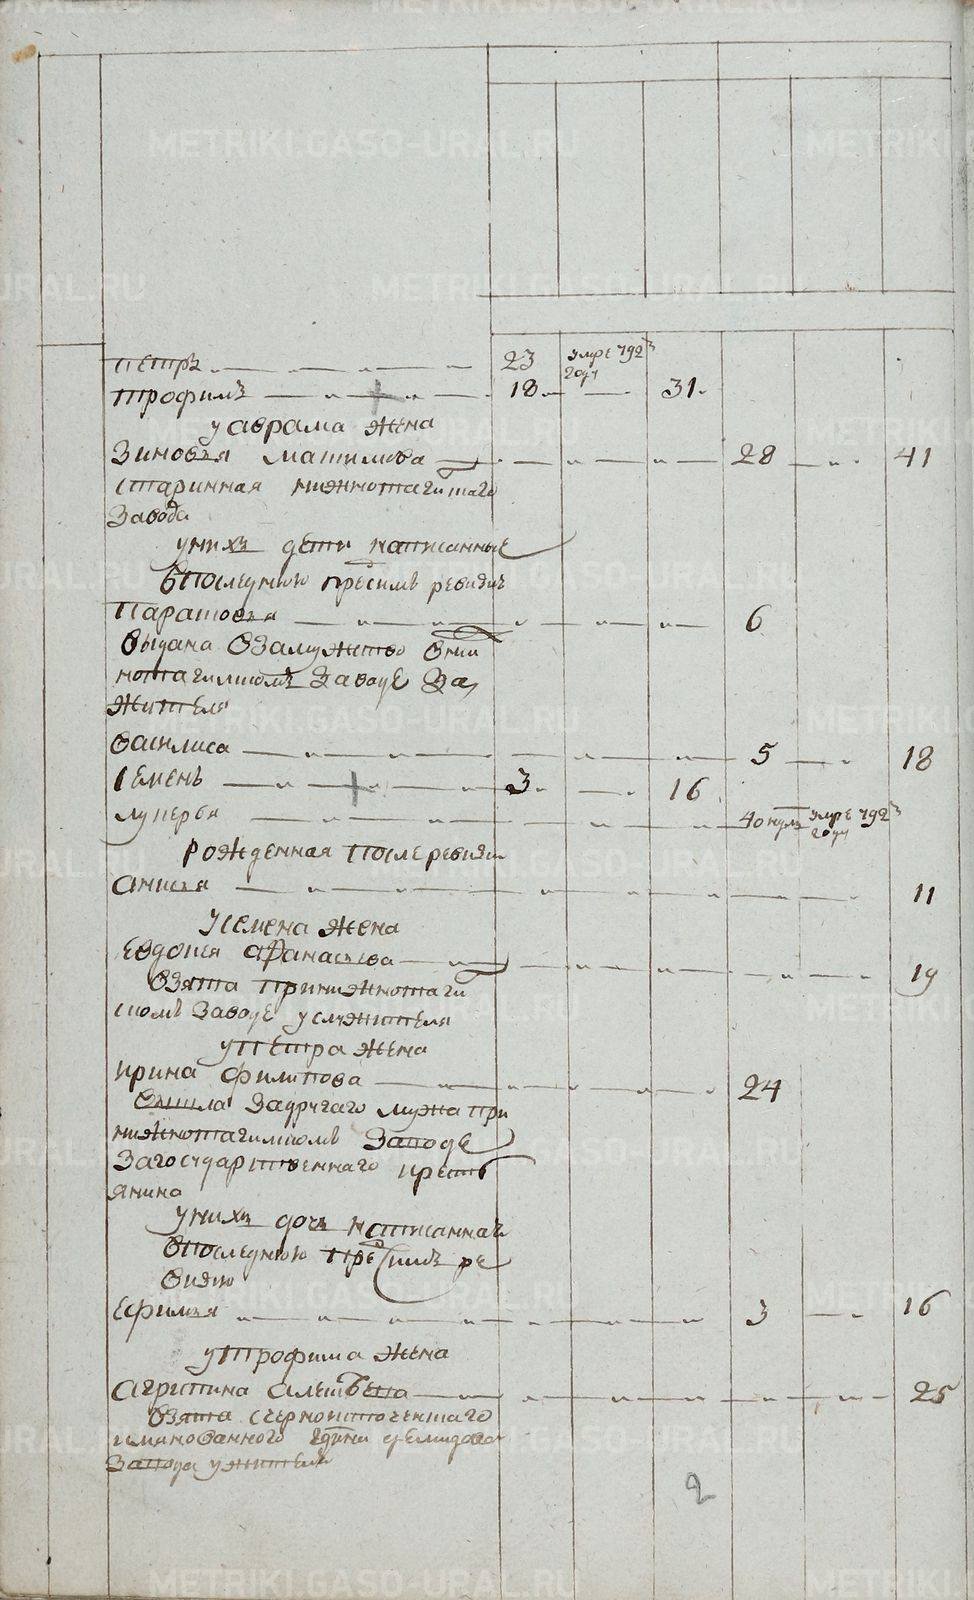 METRIKI.GASO-URAL.RU
петръ 23 умре 792г году
трофимъ 18 31
у аврама жена
Зиновья 28 41
старинная нижнотагилскаго
завода
у нихъ дети написанные
в последнюю пред симъ ревизию
Парасковья 6
выдана взамужство в нижнотагилскомъ заводе за
жителя
Василиса 5 18
Семенъ 3 16
лукерья умре 792г году
рожденная после ревизии
анисья 11
У Семена жена
Евдокея афанасьева 19
взята при нижнотаги
скомъ заводе у служителя
у петра жена
ирина филипова 24
вышла за другаго мужа при
нижнотагилскомъ заводе
за государственнаго крестьянина
у нихъ дочь написанная
в последнюю пред симъ ревизию
Ефимья 3 16
у трофима жена
агрипина алексеева 25
взята с черноисточенскаго
демидова
завода у жителя
2